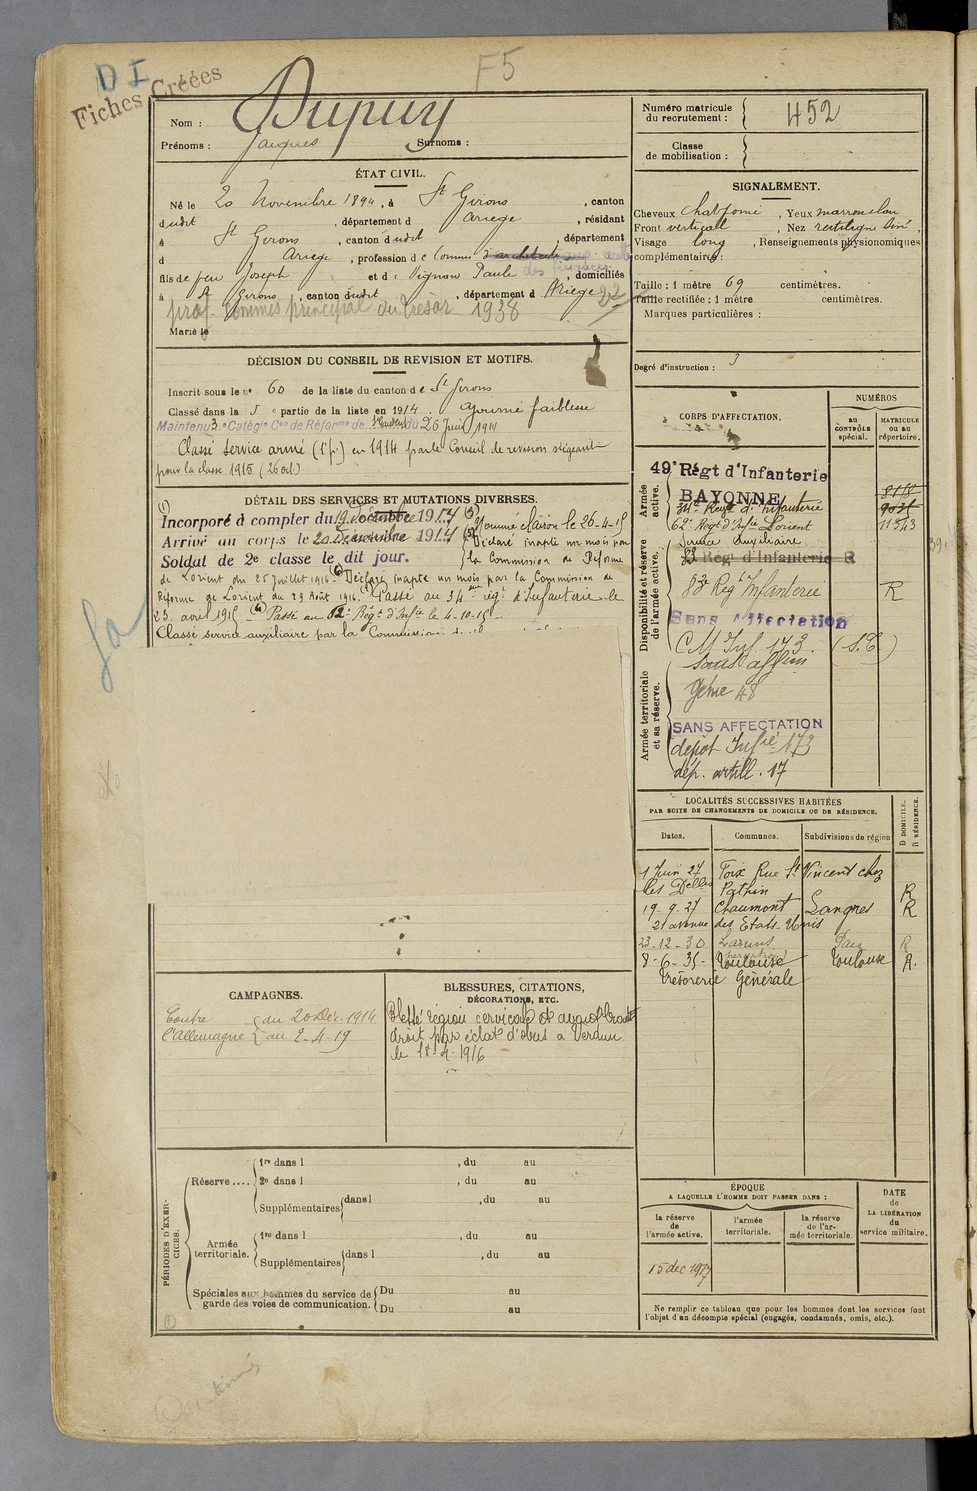 D I
F5
Fiches Créées
Nom : Dupuy
Prénoms : Jacques Surnoms :
ÉTAT CIVIL.
Né le 20 Novembre 1894, à St Girons, canton
dudit, département d Ariege, résidant
à St Girons, canton dudit, département
d Ariege, profession de Commis d'architecte
des finances
fils de feu Joseph et de Vignon Paule, domiciliés
à St Girons, canton dudit, département d Ariege
22
prof. commis principal du Trésor 1938
Marié le
DÉCISION DU CONSEIL DE REVISION ET MOTIFS.
Inscrit sous le n° 60 de la liste du canton de St Girons
Classé dans la 5e partie de la liste en 1914. Ajourné faiblesse
Maintenu 3e Catégie Con de Réforme de St Gaudens du 26 Juin 1914
Classé service armé (1e p.) en 1914 par le Conseil de revision siégeant
pour la classe 1915 (26 oct.)
DÉTAIL DES SERVICES ET MUTATIONS DIVERSES.
Incorporé à compter du 19 octobre 1914
Arrivé au corps le 20 Décembre 1914
Soldat de 2e classe le dit jour.
Nommé clairon le 26-4-15
Déclaré inapte un mois par
la Commission de Réforme
de Lorient du 25 juillet 1916. Déclaré inapte un mois par la Commission de
Réforme de Lorient du 29 Août 1916. Passé au 34me rég. d'Infanterie le
23 avril 1915 Passé au 62e Rég. d'Infie le 4-10-15
Classé service auxiliaire par la Commission
CAMPAGNES.
Contre l'Allemagne
du 20 Déc. 1914
au 2-4-19
BLESSURES, CITATIONS,
DÉCORATIONS, ETC.
Blessé région cervicale et
droit par éclat d'obus à Verdun
le 18-4-1916
PÉRIODES D'EXERCICES.
Réserve....
1re dans l , du au
2e dans l , du au
Supplémentaires dans l , du au
Armée territoriale.
1re dans l , du au
Supplémentaires dans l , du au
Spéciales aux hommes du service de garde des voies de communication.
Du au
Du au
Numéro matricule du recrutement : 452
Classe de mobilisation :
SIGNALEMENT.
Cheveux chat foncé, Yeux marron clair
Front vertical, Nez rectilign
Visage long, Renseignements physionomiques
complémentaires :
Taille : 1 mètre 69 centimètres.
Taille rectifiée : 1 mètre centimètres.
Marques particulières :
Degré d'instruction : 3
CORPS D'AFFECTATION.
NUMÉROS
au CONTRÔLE spécial.
MATRICULE ou au répertoire.
Armée active.
49e Régt d'Infanterie
BAYONNE
34e Regt d'Infanterie
62e Régt d'Infie Lorient 11543
Service Auxiliaire
Disponibilité et réserve de l'armée active.
83 Régt d'Infanterie R
83e Reg Infanterie R
Sans Affectation
C M Inf 173. (S.C.)
sans affon
Armée territoriale et sa réserve.
Génie 48
SANS AFFECTATION
dépot Infie 173
dép. artill. 17
LOCALITÉS SUCCESSIVES HABITÉES
PAR SUITE DE CHANGEMENTS DE DOMICILE OU DE RÉSIDENCE.
Dates. Communes. Subdivisions de région D DOMICILE. R RÉSIDENCE.
1 Juin 27 Foix Rue St Vincent chez
les Delles Pathin R
19-9-27 Chaumont Langres R
21 avenue des Etats-Unis
23-12-30 Laruns Pau R
8-6-35- Toulouse Toulouse R.
Trésorerie Générale
ÉPOQUE
A LAQUELLE L'HOMME DOIT PASSER DANS :
la réserve de l'armée active.
l'armée territoriale.
la réserve de l'armée territoriale.
DATE de LA LIBÉRATION du service militaire.
15 dec 1917
Ne remplir ce tableau que pour les hommes dont les services font
l'objet d'un décompte spécial (engagés, condamnés, omis, etc.).